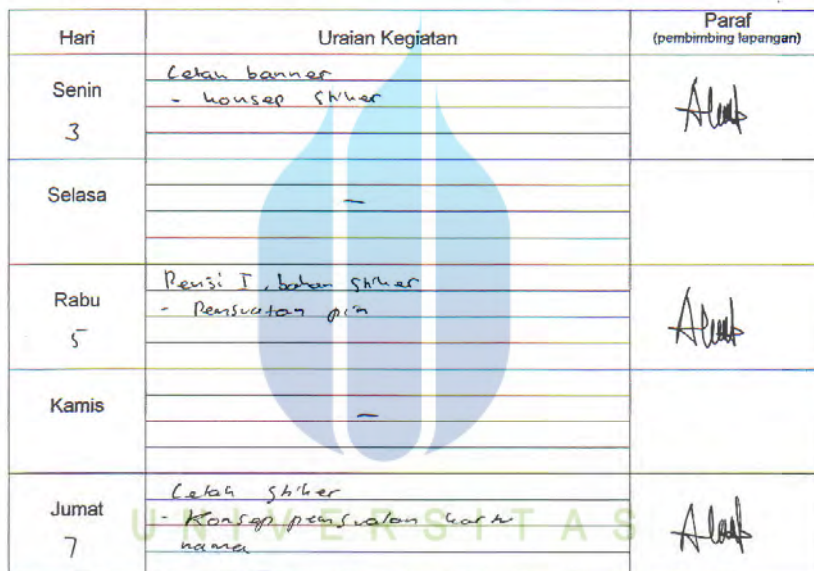 Hari Uraian Kegiatan Paraf
(pembimbing lapangan)
Senin
3
Cetak banner
- konsep stiker
Selasa
-
Rabu
5
Revisi I, bahan stiker
- Pembuatan pin
Kamis
-
Jumat
7
Cetak stiker
- Konsep pembuatan kartu
nama
UNIVERSITAS